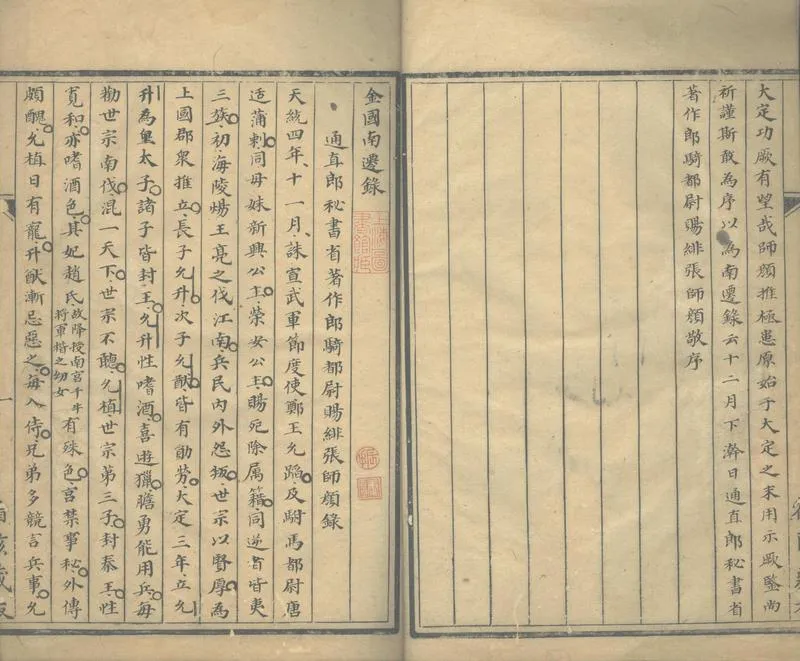 大定功厥有望哉師顏推極患原始于大定之末用示厥鑒尚
祈謹斯敢為序以為南遷錄云十二月下澣日通直郎秘書省
著作郎騎都尉賜緋張師顏敬序
金國南遷錄
通直郎秘書省著作郎騎都尉賜緋張師顏錄
天統四年、十一月、誅宣武軍節度使鄭王允蹈、及駙馬都尉唐
适蒲剌、同母妹新興公主、榮安公主、賜死除属籍、同逆者皆夷
三族、初、海陵煬王亮之伐江南、兵民内外怨叛、世宗以賢厚為
上國郡衆推立、長子允升、次子允猷、皆有勛勞、大定三年、立允
升為皇太子、諸子皆封王、允升性嗜酒、喜遊獵、膽勇能用兵、每
勸世宗南伐、混一天下、世宗不聽、允植、世宗第三子、封秦王、性
寬和、亦嗜酒色、其妃趙氏、故降授南宮千牛將軍楷之幼女有殊色、宮禁事秘、外傳
頗醜、允植日有寵、升猷漸忌惡之、每入侍、兄弟多競言兵事、允